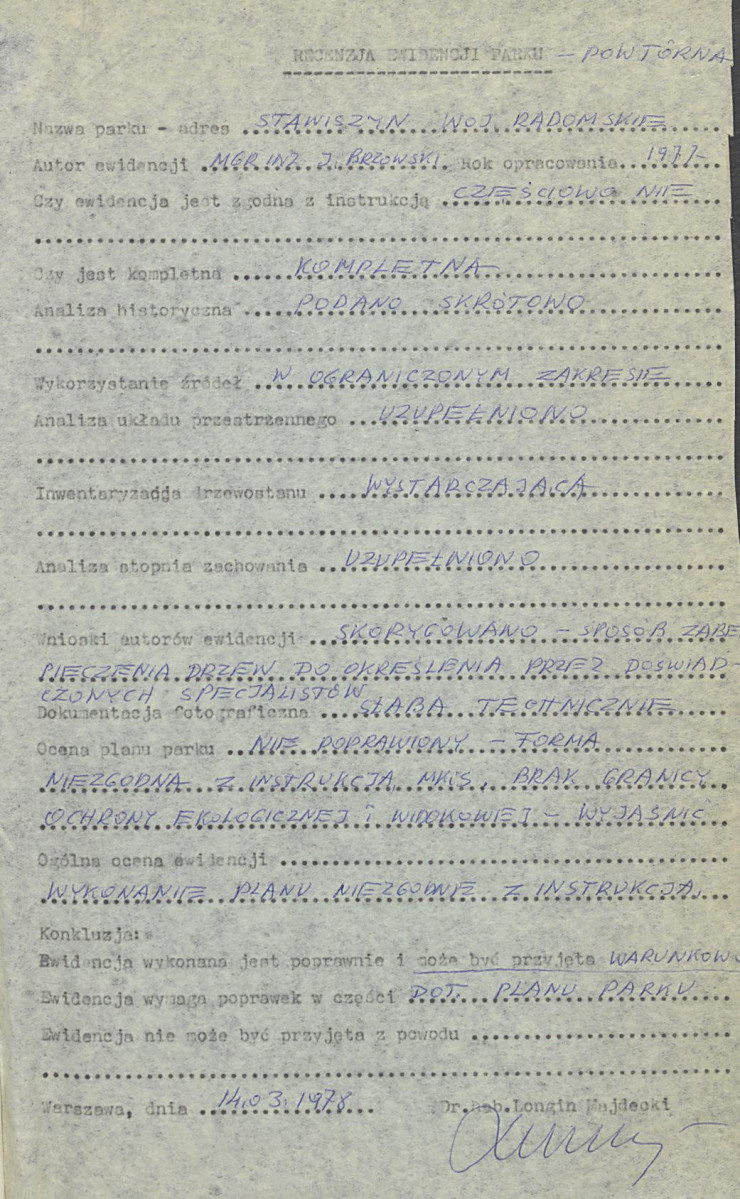 RECENZJA EWIDENCJI PARKU – POWTÓRNA
Nazwa parku - adres STAWISZYN WOJ. RADOMSKIE
Autor ewidencji MGR INŻ J. BRZOWSKI. Rok opracowania 1977
Czy ewidencja jest zgodna z instrukcją CZĘŚCIOWO NIE
Czy jest kompletna KOMPLETNA
Analiza historyczna PODANO SKRÓTOWO
Wykorzystanie źródeł W OGRANICZONYM ZAKRESIE
Analiza układu przestrzennego UZUPEŁNIONO
Inwentaryzacja drzewostanu WYSTARCZAJĄCA
Analiza stopnia zachowania UZUPEŁNIONO
Wnioski autorów ewidencji SKORYGOWANO – SPOSÓB ZABE
PIECZENIA DRZEW DO OKREŚLENIA PRZEZ DOŚWIAD-
CZONYCH SPECJALISTÓW
Dokumentacja fotograficzna SŁABA TECHNICZNIE
Ocena planu parku NIE POPRAWIONY – FORMA
NIEZGODNA Z INSTRUKCJĄ MKiS, BRAK GRANICY
OCHRONY EKOLOGICZNEJ I WIDOKOWEJ – WYJAŚNIĆ
Ogólna ocena ewidencji
WYKONANIE PLANU NIEZGODNE Z INSTRUKCJĄ.
Konkluzja:
Ewidencja wykonana jest poprawnie i może być przyjęta WARUNKOWO
Ewidencja wymaga poprawek w części DOT. PLANU PARKU
Ewidencja nie może być przyjęta z powodu
Warszawa, dnia 14.03.1978 Dr.hab.Longin Majdecki